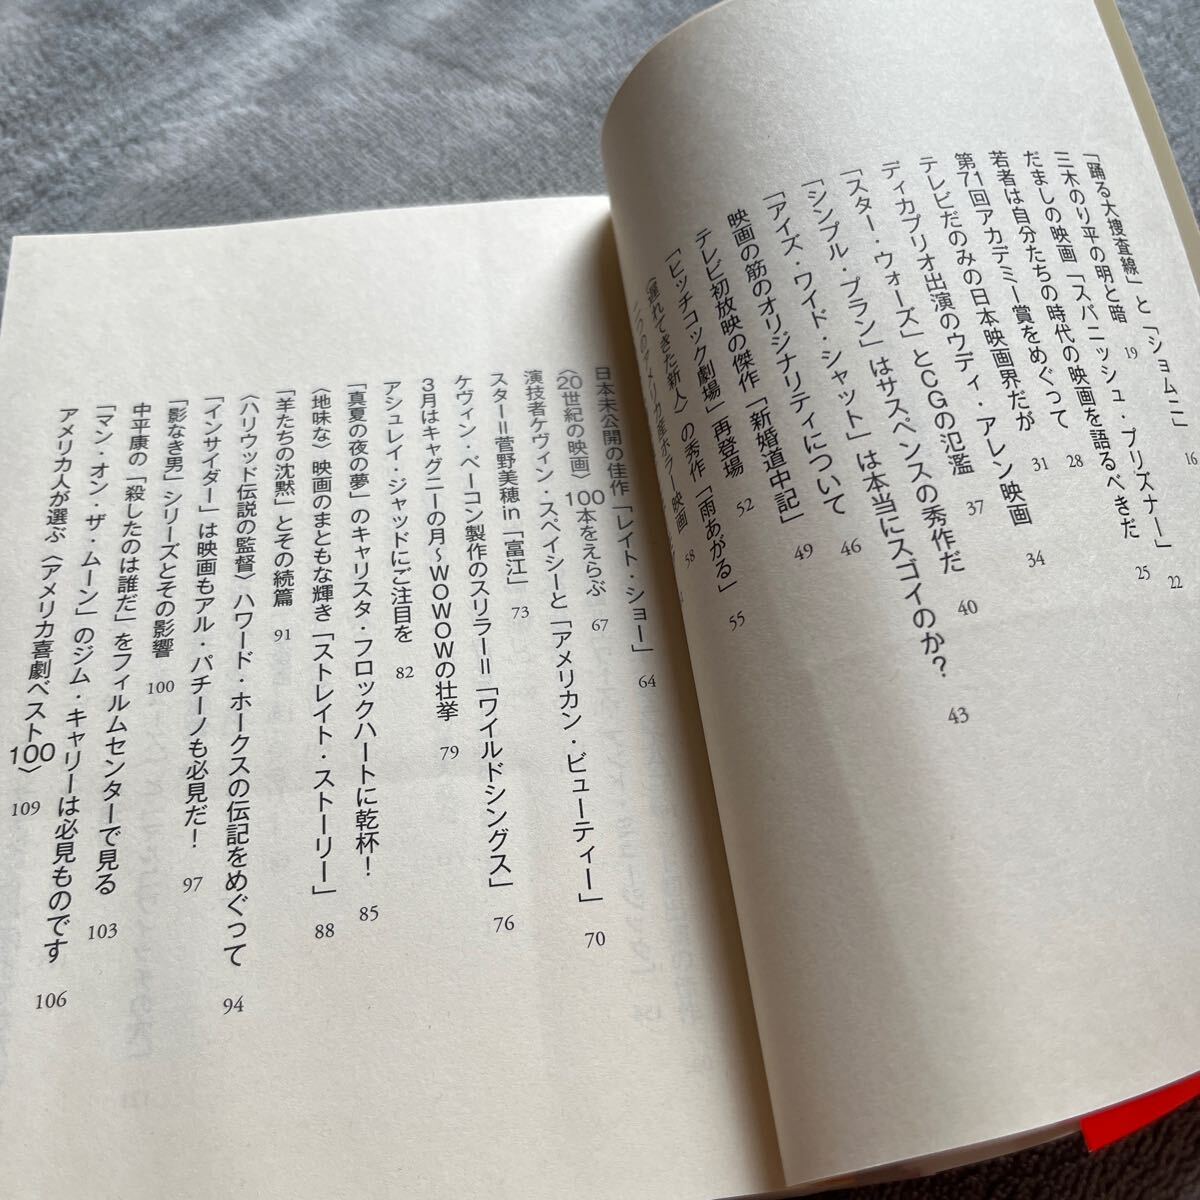 「踊る大捜査線」と「ショムニ」 16
三木のり平の明と暗 19
だましの映画「スパニッシュ・プリズナー」 22
若者は自分たちの時代の映画を語るべきだ 25
第71回アカデミー賞をめぐって 28
テレビだのみの日本映画界だが 31
ディカプリオ出演のウディ・アレン映画 34
「スター・ウォーズ」とCGの氾濫 37
「シンプル・プラン」はサスペンスの秀作だ 40
「アイズ・ワイド・シャット」は本当にスゴイのか? 43
映画の筋のオリジナリティについて 46
テレビ初放映の傑作「新婚道中記」 49
「ヒッチコック劇場」再登場 52
〈遅れてきた新人〉の秀作「雨あがる」 55
二つのアメリカ産ホラー映画 58
日本未公開の佳作「レイト・ショー」 64
〈20世紀の映画〉100本をえらぶ 67
演技者ケヴィン・スペイシーと「アメリカン・ビューティー」 70
スター=菅野美穂in「富江」 73
ケヴィン・ベーコン製作のスリラー=「ワイルドシングス」 76
3月はキャグニーの月~WOWOWの壮挙 79
アシュレイ・ジャッドにご注目を 82
「真夏の夜の夢」のキャリスタ・フロックハートに乾杯! 85
〈地味な〉映画のまともな輝き「ストレイト・ストーリー」 88
「羊たちの沈黙」とその続篇 91
〈ハリウッド伝説の監督〉ハワード・ホークスの伝記をめぐって 94
「インサイダー」は映画もアル・パチーノも必見だ! 97
「影なき男」シリーズとその影響 100
中平康の「殺したのは誰だ」をフィルムセンターで見る 103
「マン・オン・ザ・ムーン」のジム・キャリーは必見ものです 106
アメリカ人が選ぶ〈アメリカ喜劇ベスト100〉 109